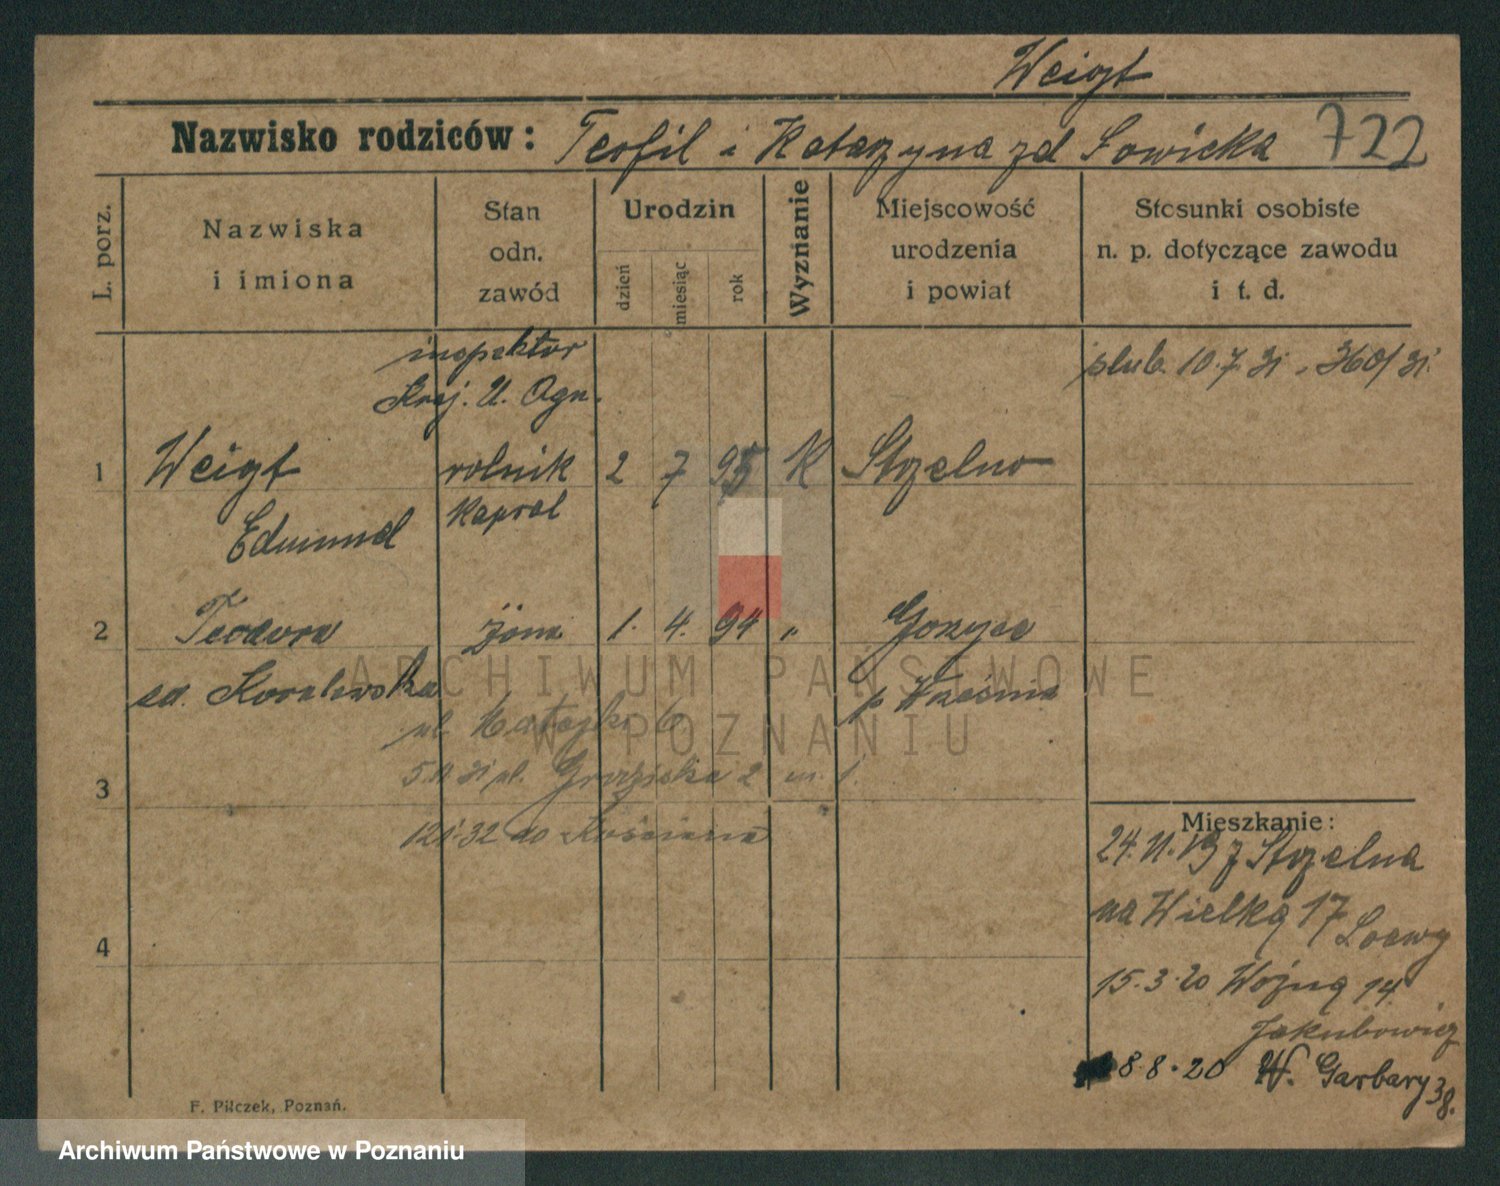 Weigt
Nazwisko rodziców: Teofil i Katarzyna zd Sowicka 722
L. porz.
Nazwiska
i imiona
Stan
odn.
zawód
Urodzin
dzień
miesiąc
rok
Wyznanie
Miejscowość
urodzenia
i powiat
Stosunki osobiste
n. p. dotyczące zawodu
i t. d.
inspektor
Kraj. U. Ogn.
ślub. 10.7.31. 360/31.
1 Weigt rolnik 2 7 95 K Strzelno
Edmund kapral
2 Teodora żona 1. 4. 94 „ Gorzyce
zd. Kowalewska p Września
ul. Matejki 6
3 ul. Grodziska 2 m. 1.
32 do Kościana
4
Mieszkanie:
24.11.19 z Strzelna
na Wielką 17
15.3.20 Woźną 14
Jakubowicz
8.8.20 W. Garbary 38.
F. Pilczek, Poznań.
ARCHIWUM PAŃSTWOWE
W POZNANIU
Archiwum Państwowe w Poznaniu